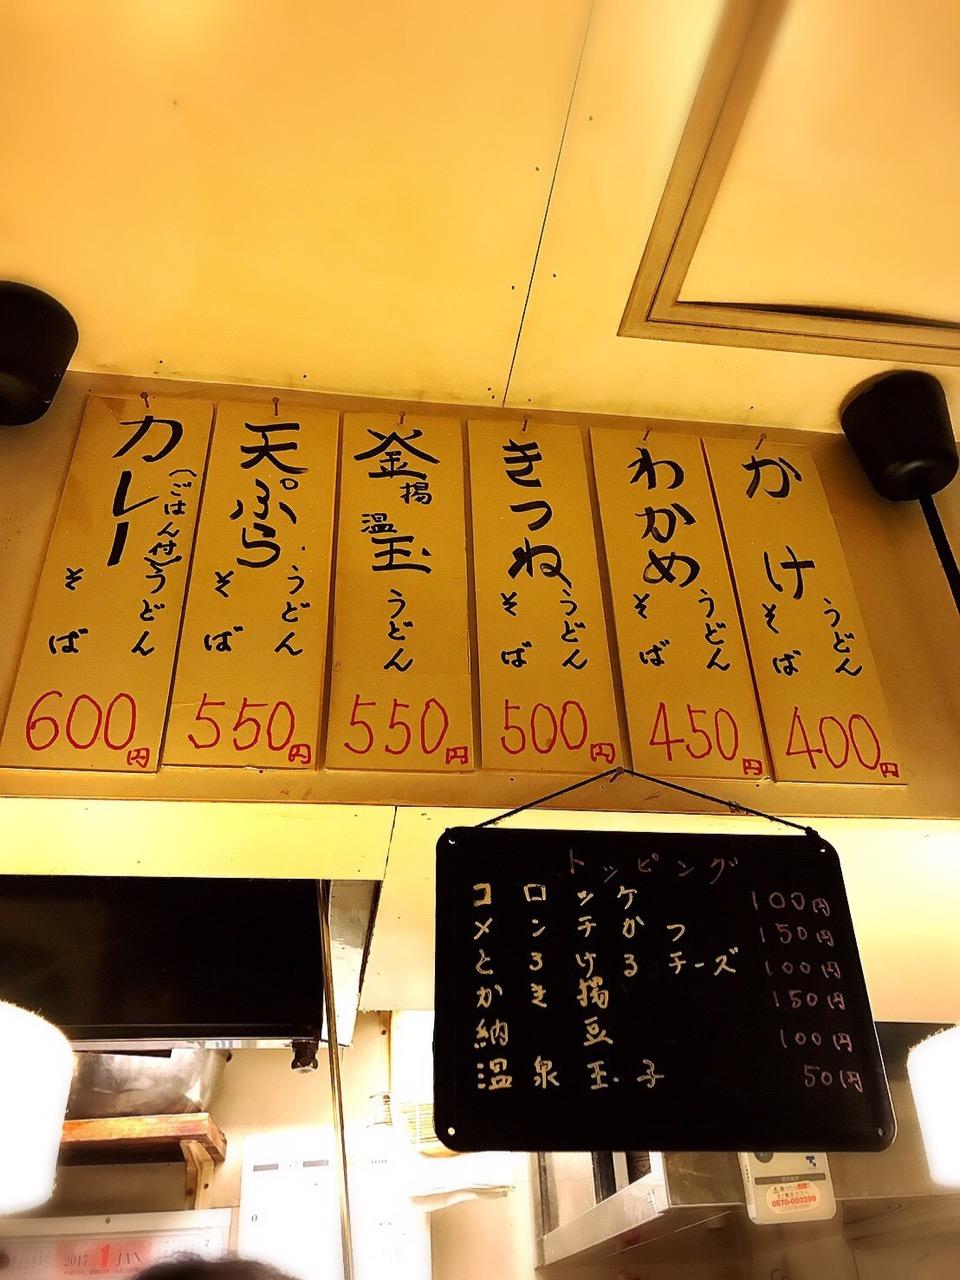 かけ
うどん
そば
400円
わかめ
うどん
そば
450円
きつね
うどん
そば
500円
釜揚
温玉
うどん
550円
天ぷら
うどん
そば
550円
カレー
(ごはん付)
うどん
そば
600円
トッピング
コロッケ 100円
メンチかつ 150円
とろけるチーズ 100円
かき揚 150円
納豆 100円
温泉玉子 50円
0570-002299
2017 1 JAN